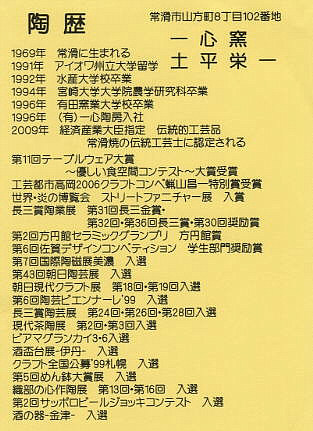 陶歴
常滑市山方町8丁目102番地
一心窯
土平栄一
1969年 常滑に生まれる
1991年 アイオワ州立大学留学
1992年 水産大学校卒業
1994年 宮崎大学大学院農学研究科卒業
1996年 有田窯業大学校卒業
1996年 (有)一心陶房入社
2009年 経済産業大臣指定 伝統的工芸品
常滑焼の伝統工芸士に認定される
第11回テーブルウェア大賞
～優しい食空間コンテスト～大賞受賞
工芸都市高岡2006クラフトコンペ蝋山昌一特別賞受賞
世界・炎の博覧会 ストリートファニチャー展 入賞
長三賞陶業展 第31回長三金賞・
第32回・第36回長三賞・第30回奨励賞
第2回方円館セラミックグランプリ 方円館賞
第6回佐賀デザインコンペティション 学生部門奨励賞
第7回国際陶磁展美濃 入選
第43回朝日陶芸展 入選
朝日現代クラフト展 第18回・第19回入選
第6回陶芸ビエンナーレ'99 入選
長三賞陶芸展 第24回・第26回・第28回入選
現代茶陶展 第2回・第3回入選
ビアマグランカイ3・6入選
酒盃台展-伊丹- 入選
クラフト全国公募'99札幌 入選
第5回めん鉢大賞展 入選
織部の心作陶展 第13回・第16回 入選
第2回サッポロビールジョッキコンテスト 入選
酒の器-金津- 入選